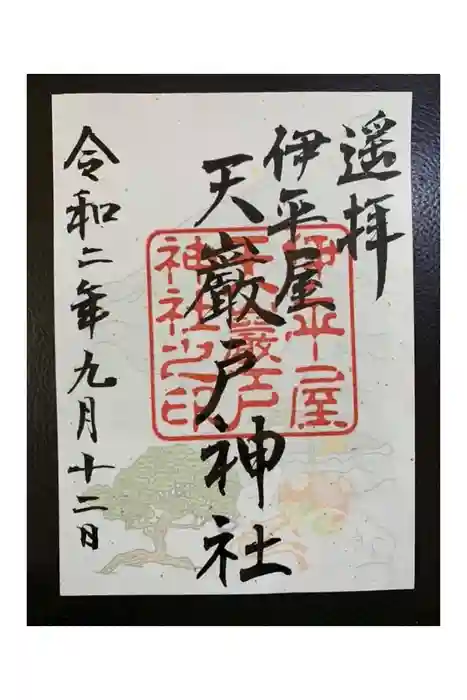 遥拝
伊平屋
天巌戸神社
令和二年九月十二日
伊平屋
天巌戸
神社之印